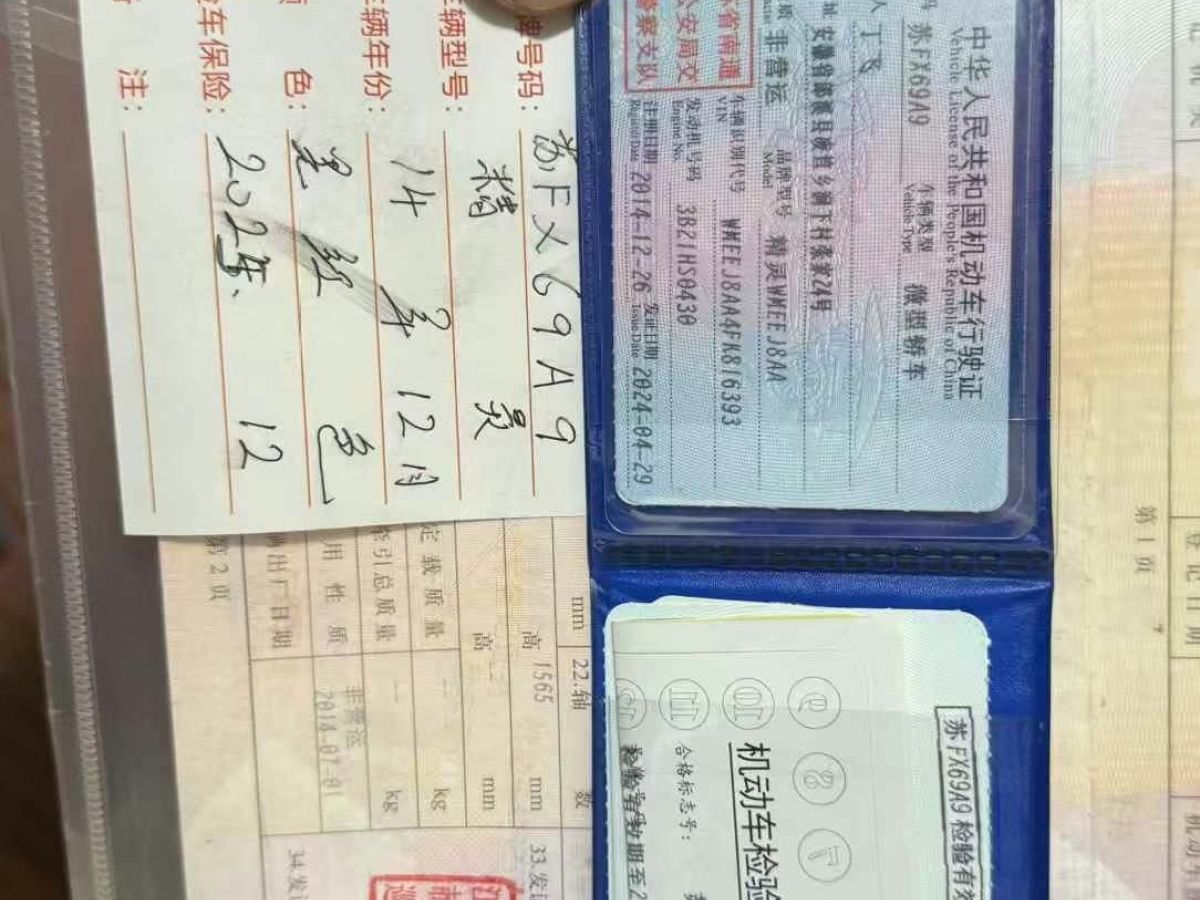 中华人民共和国机动车行驶证
Vehicle License of the People's Republic of China
苏FX69A9 车辆类型 微型轿车
Vehicle Type
人 丁飞
址 安徽省
24号
质 非营运 品牌型号 精灵WMEEJ8AA
Model
省南通
公安局交
警察支队
车辆识别代号 WMEEJ8AA4FK816393
VIN
发动机号码 3B21HS0430
Engine No.
注册日期 2014-12-26 发证日期 2024-04-29
Register Date Issue Date
牌号码: 苏FX69A9
车辆型号: 精灵
车辆年份: 14年12月
色: 黑红色
车保险: 2025年、12
注:
苏FX69A9 检验有效
机动车检验
合格标志号:
第1页
登记日期
mm 22.轴 数
高 1565 mm 33.发证
高 -- mm
定载质量 -- kg
牵引总质量 -- kg
用性质 非营运
出厂日期 2014-07-01 34.发证
第2页